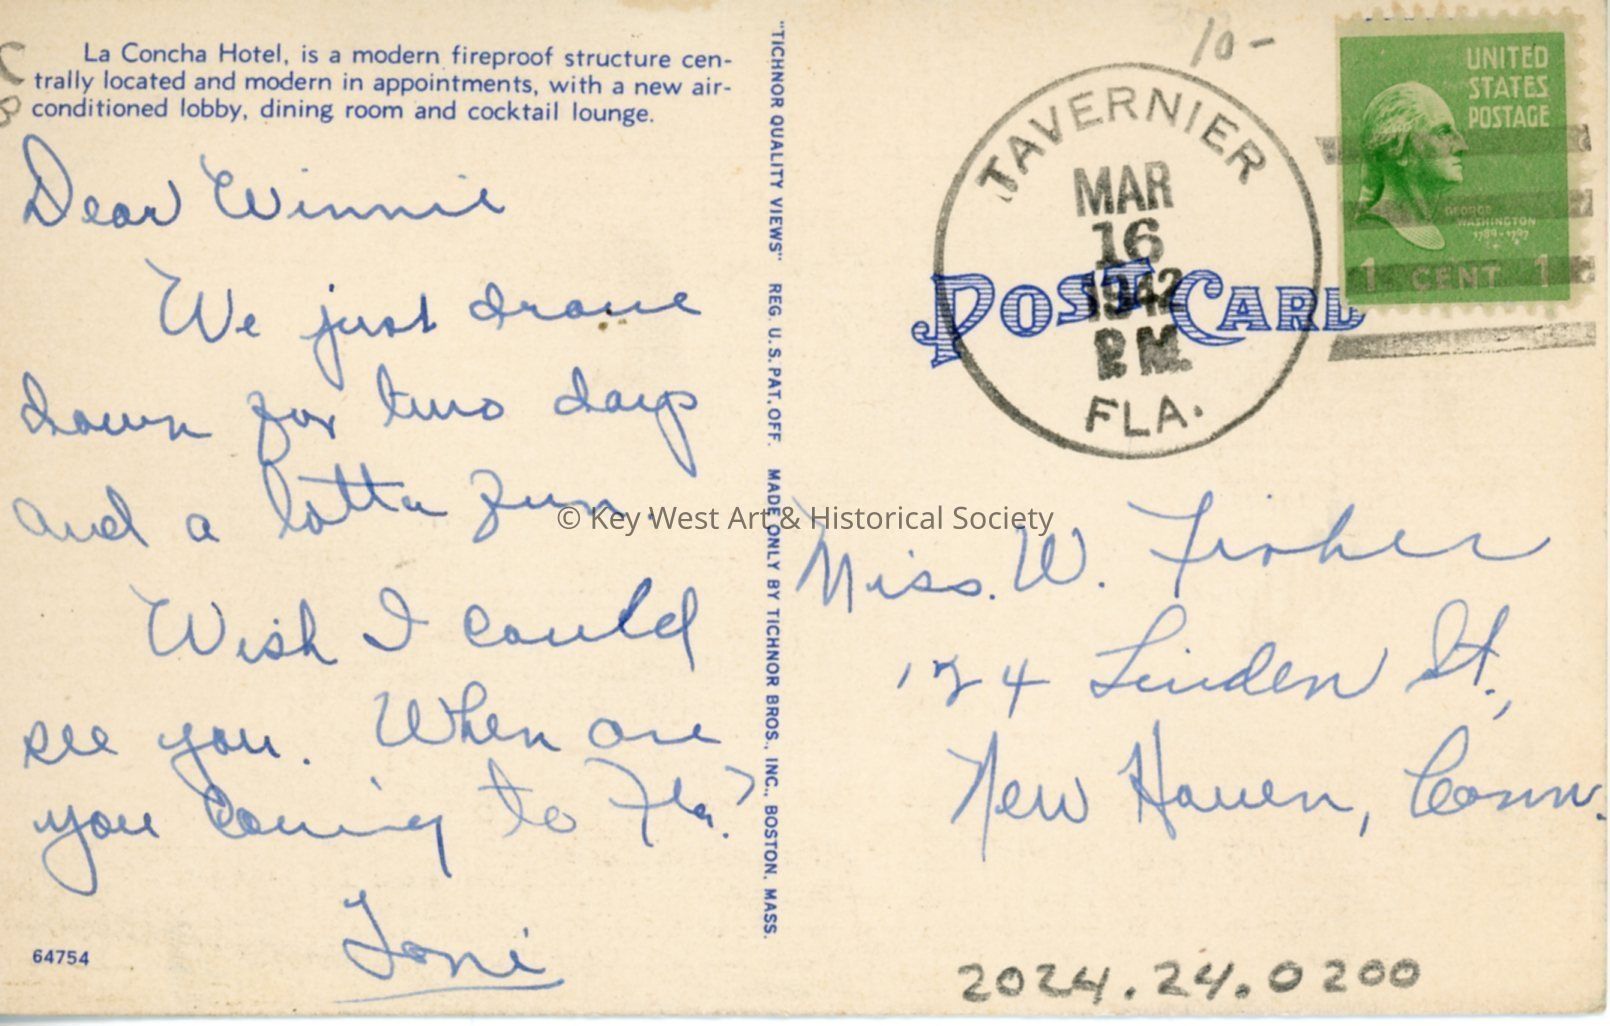 La Concha Hotel, is a modern fireproof structure cen-
trally located and modern in appointments, with a new air-
conditioned lobby, dining room and cocktail lounge.
C
B
Dear Winnie
We just drove
down for two days
and a lotta fun.
Wish I could
see you. When are
you coming to Fla?
Toni
64754
"TICHNOR QUALITY VIEWS" REG. U.S. PAT. OFF. MADE ONLY BY TICHNOR BROS., INC., BOSTON, MASS.
10-
TAVERNIER
MAR
16
1942
P.M.
FLA.
POST CARD
UNITED
STATES
POSTAGE
GEORGE
WASHINGTON
1789-1797
1 CENT 1
© Key West Art & Historical Society
Miss. W. Fisher
124 Linden St.,
New Haven, Conn.
2024.24.0200